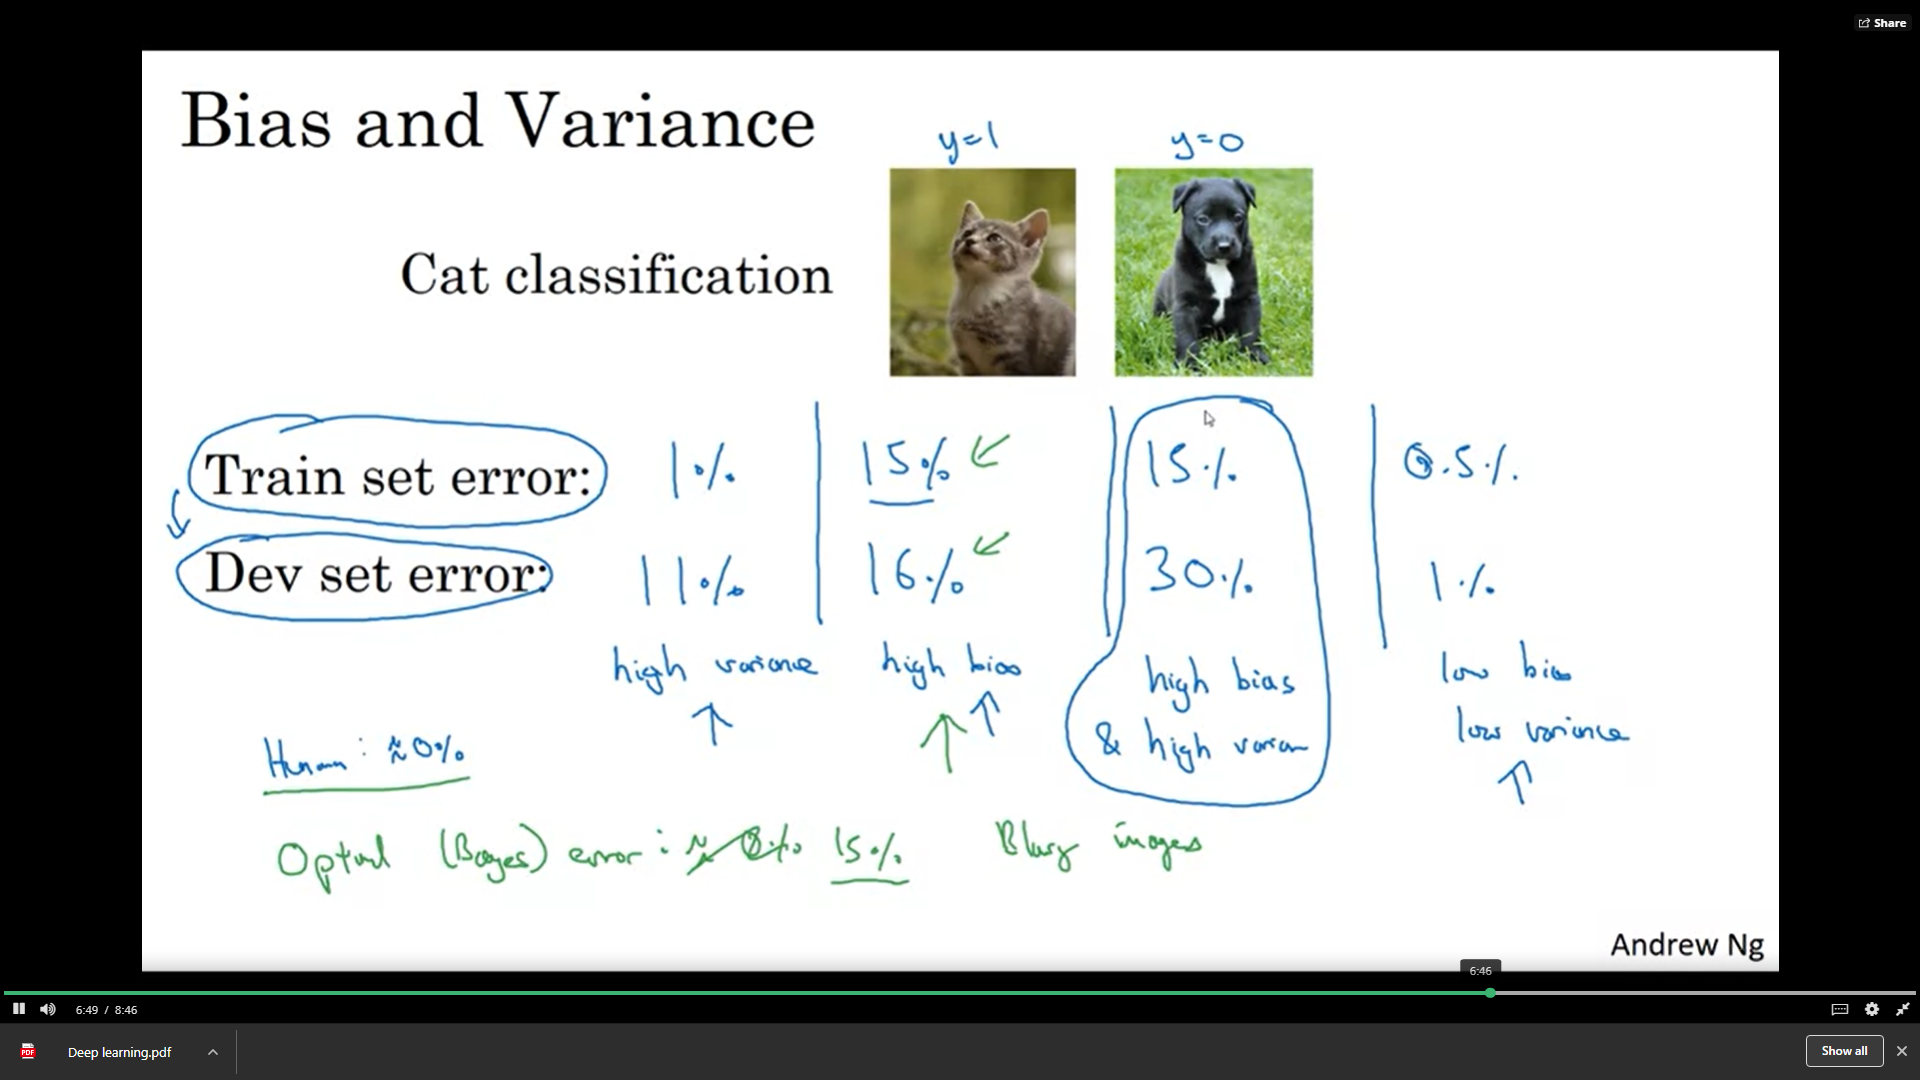 Share
Bias and Variance
y=1 y=0
Cat classification
Train set error: 1% 15% 15% 0.5%
Dev set error: 11% 16% 30% 1%
high variance high bias high bias low bias
& high varian low variance
Human: ≈0%
Optimal (Bayes) error: ≈ 0% 15% Blurry images
Andrew Ng
6:46
6:49 / 8:46
PDF Deep learning.pdf Show all